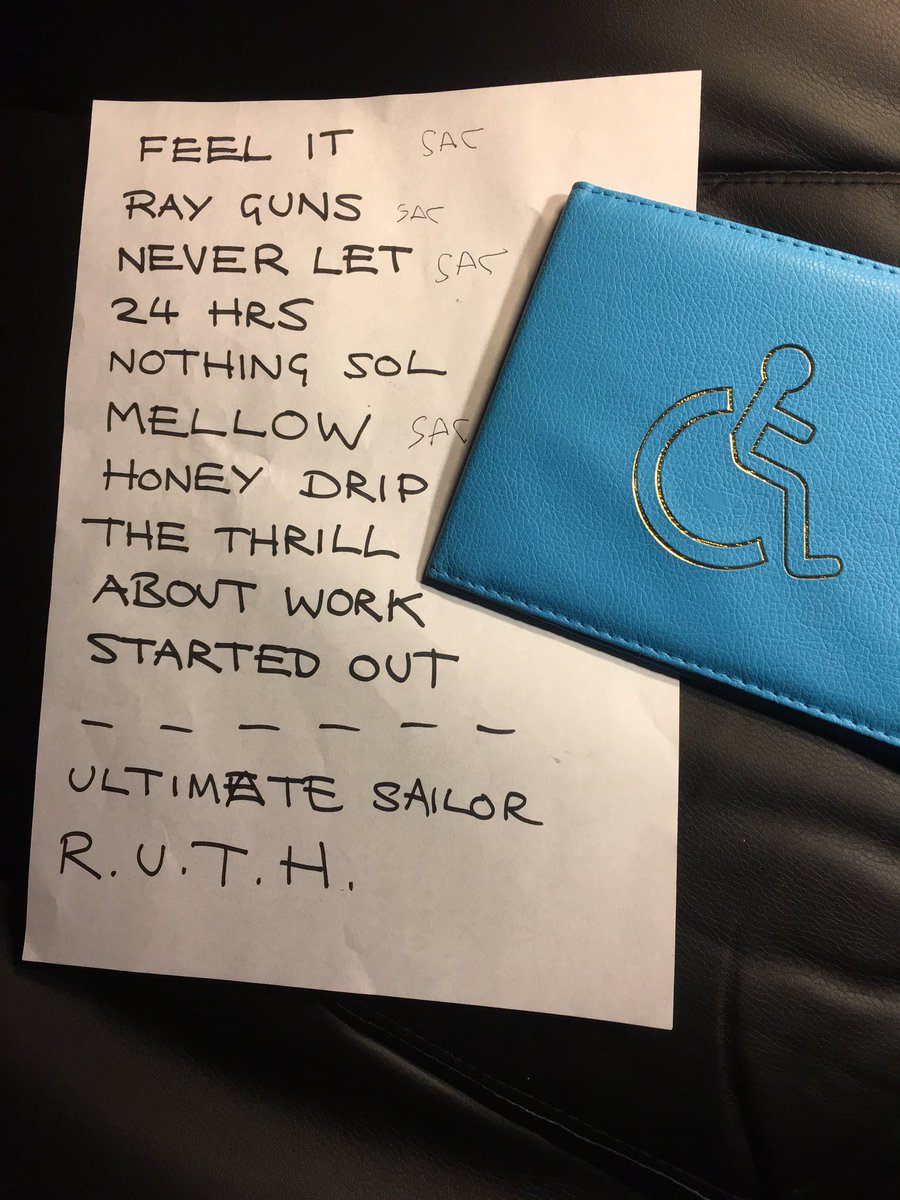 FEEL IT SAC
RAY GUNS SAC
NEVER LET SAC
24 HRS
NOTHING SOL
MELLOW SAC
HONEY DRIP
THE THRILL
ABOUT WORK
STARTED OUT
— — — — — —
ULTIMATE SAILOR
R.U.T.H.